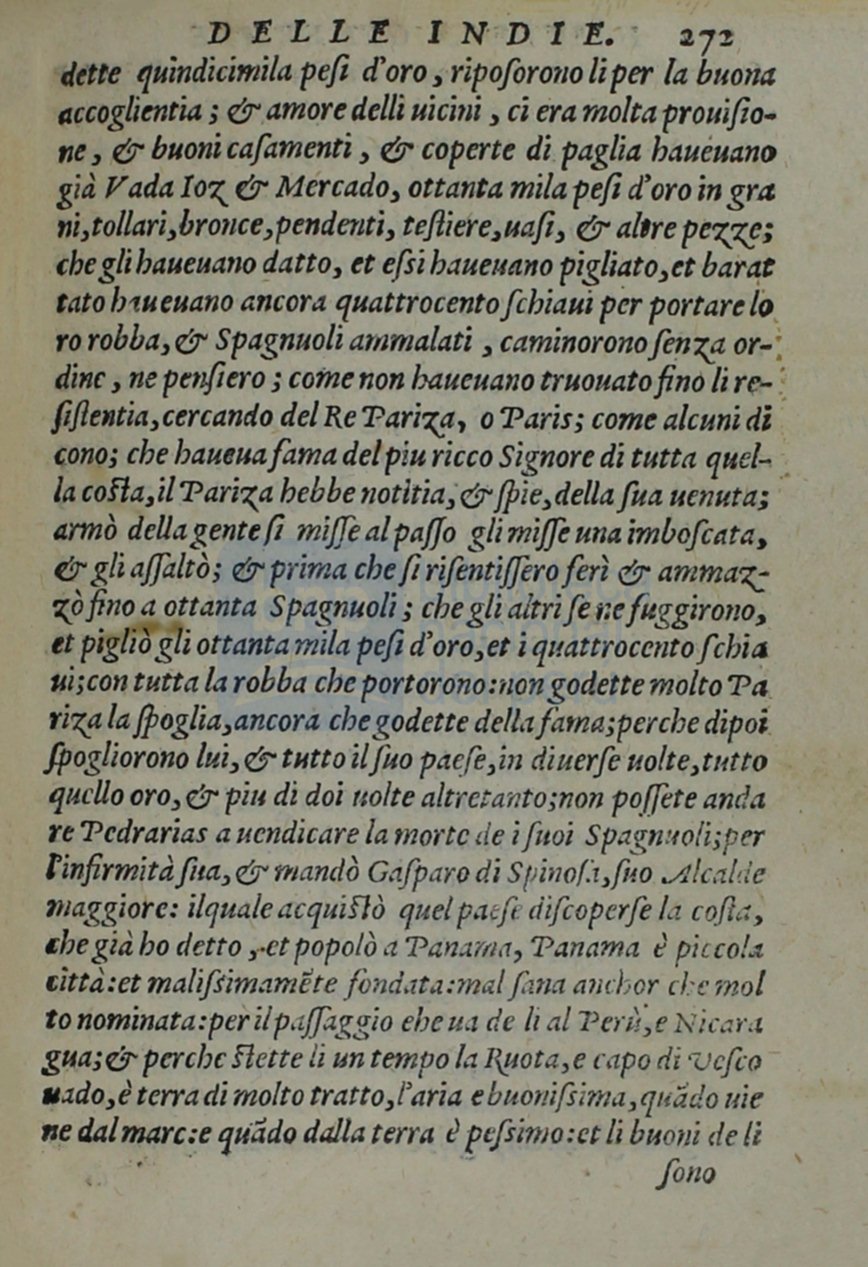 DELLE INDIE. 272
dette quindicimila peſi d'oro, ripoſorono li per la buona
accoglientia; & amore delli uicini, ci era molta prouiſio-
ne, & buoni caſamenti, & coperte di paglia haueuano
già Vada Ioz & Mercado, ottanta mila peſi d'oro in gra
ni, tollari, bronce, pendenti, teſtiere, uaſi, & altre pezze;
che gli haueuano datto, et eſsi haueuano pigliato, et barat
tato haueuano ancora quattrocento ſchiaui per portare lo
ro robba, & Spagnuoli ammalati, caminorono ſenza or-
dine, ne penſiero; come non haueuano truouato fino li re-
ſiſtentia, cercando del Re Pariza, o Paris; come alcuni di
cono; che haueua fama del piu ricco Signore di tutta quel-
la coſta, il Pariza hebbe notitia, & ſpie, della ſua uenuta;
armò della gente ſi miſſe al paſſo gli miſſe una imboſcata,
& gli aſſaltò; & prima che ſi riſentiſſero ferì & ammaz-
zò fino a ottanta Spagnuoli; che gli altri ſe ne fuggirono,
et pigliò gli ottanta mila peſi d'oro, et i quattrocento ſchia
ui; con tutta la robba che portorono: non godette molto Pa
riza la ſpoglia, ancora che godette della fama; perche dipoi
ſpogliorono lui, & tutto il ſuo paeſe, in diuerſe uolte, tutto
quello oro, & piu di doi uolte altretanto; non poſſete anda
re Pedrarias a uendicare la morte de i ſuoi Spagnuoli; per
l'infirmità ſua, & mandò Gaſparo di Spinoſa, ſuo Alcalde
maggiore: ilquale acquiſtò quel paeſe diſcoperſe la coſta,
che già ho detto, et popolò a Panama, Panama è piccola
città: et maliſsimamẽte fondata: mal ſana anchor che mol
to nominata: per il paſſaggio che ua de li al Perù, e Nicara
gua; & perche ſtette li un tempo la Ruota, e capo di Veſco
uado, è terra di molto tratto, l'aria e buoniſsima, quãdo uie
ne dal mare: e quãdo dalla terra è peſsimo: et li buoni de li
ſono